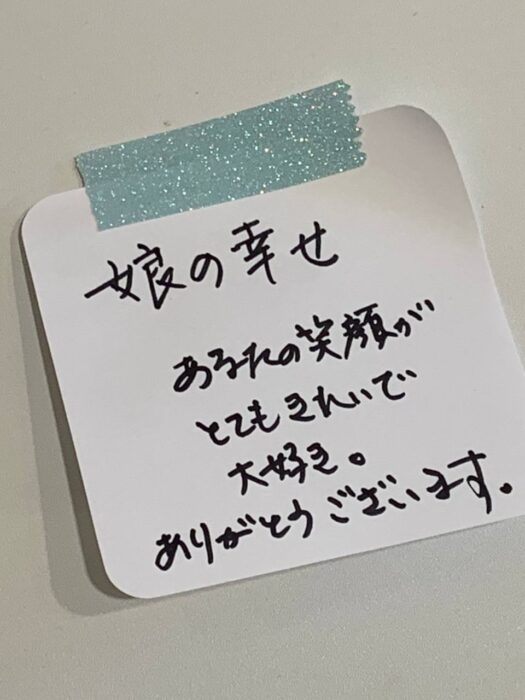 娘の幸せ
あなたの笑顔が
とてもきれいで
大好き。
ありがとうございます。